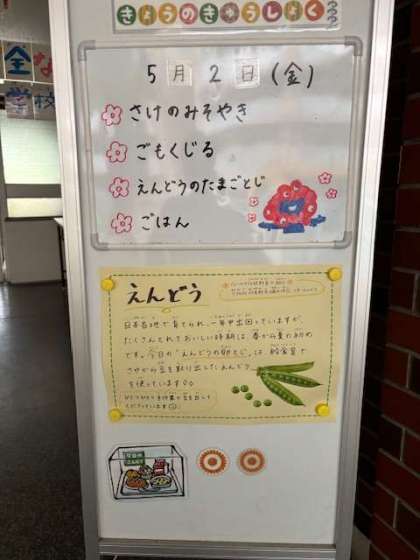 きょうのきゅうしょく
全な
学校
5月2日(金)
さけのみそやき
ごもくじる
えんどうのたまごとじ
ごはん
えんどう
日本各地で育てられ、一年中出回っていますが、
たくさんとれておいしい時期は、春から夏の初め
です。今日の「えんどうの卵とじ」は、給食室で
さやから豆を取り出したえんどう
を使っています